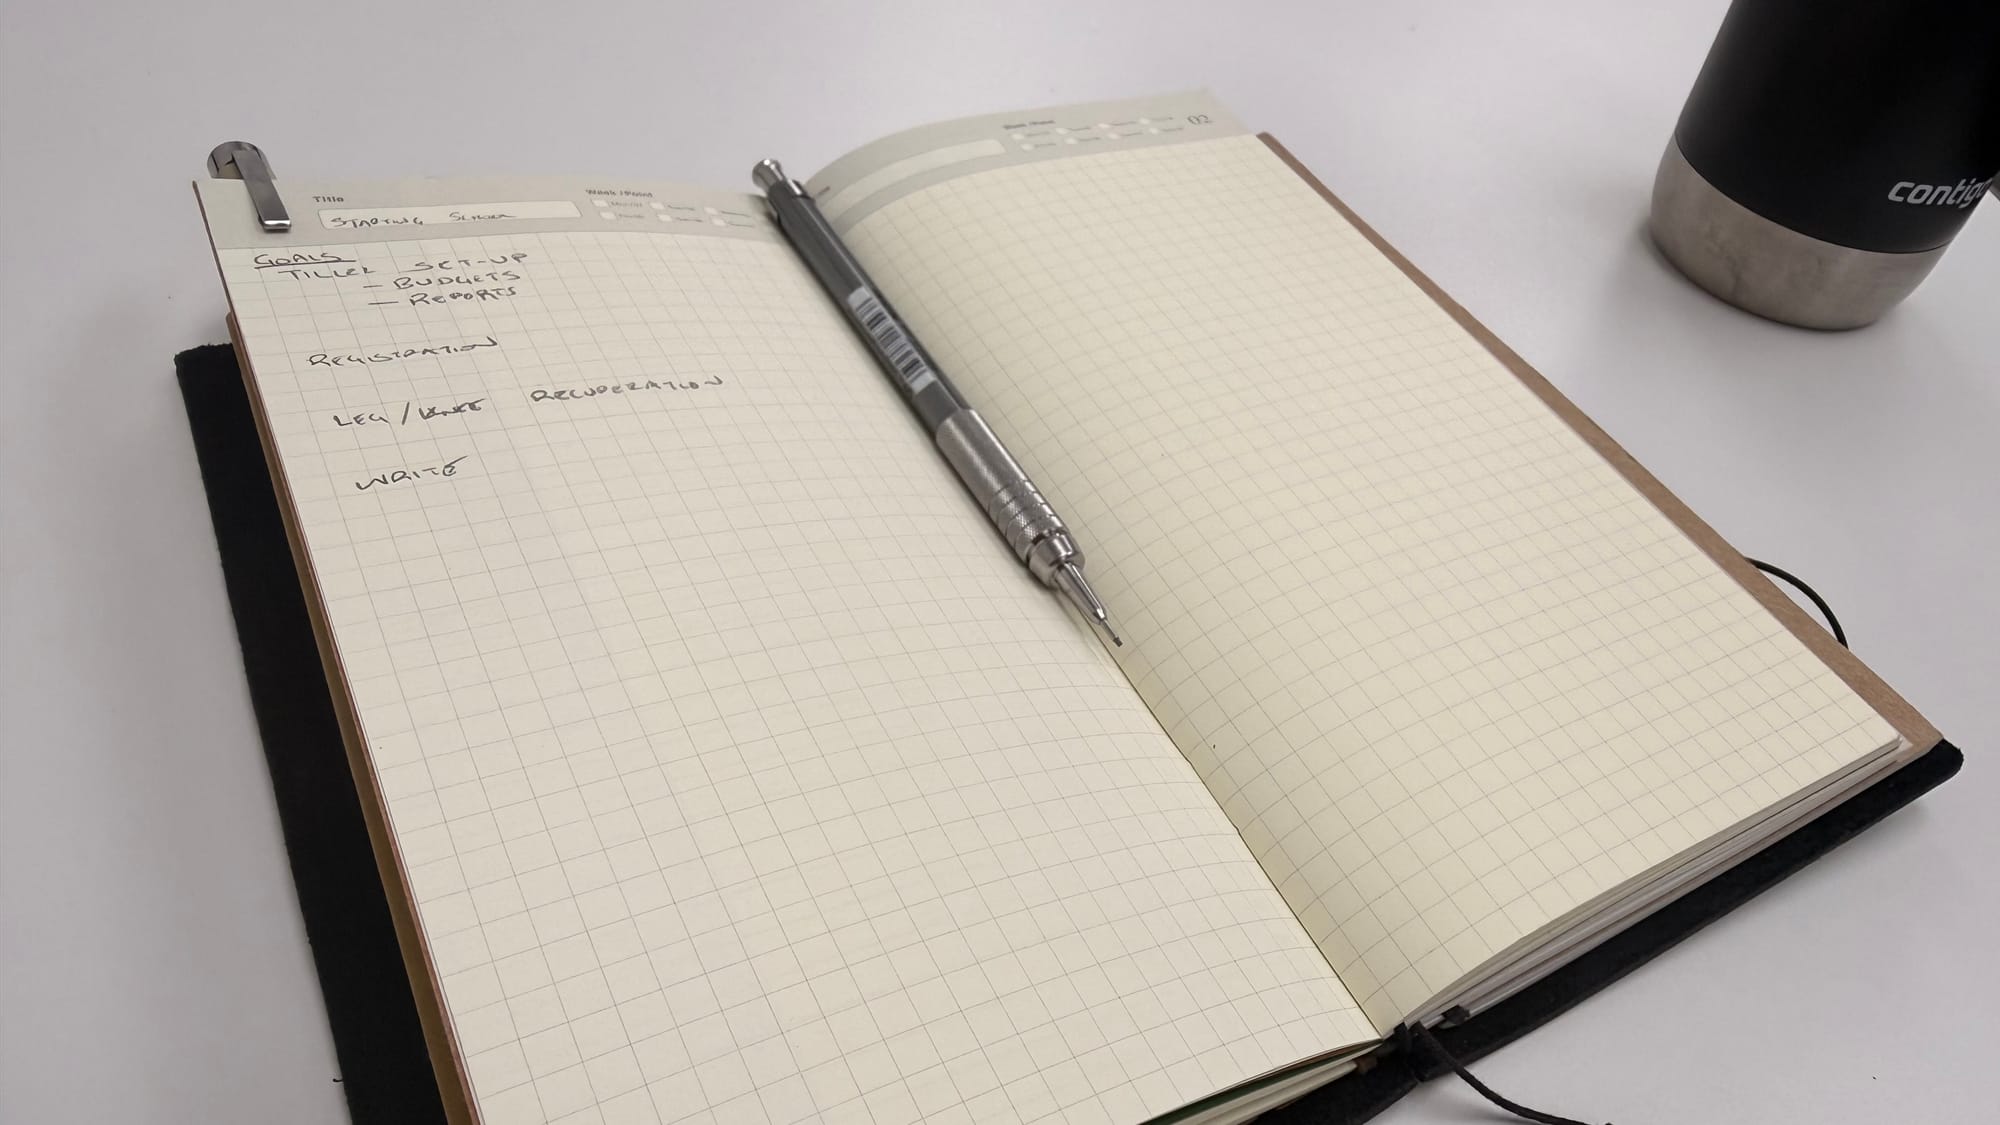 Title
STARTING SCHOOL
GOALS
TILLER SET-UP
— BUDGETS
— REPORTS
REGISTRATION
LEG / KNEE RECUPERATION
WRITE
02
contigo